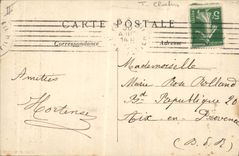 CARTE POSTALE
Correspondance
Adresse
Amitiés
Hortense
Mademoiselle
Marie Rose Rolland
Bd République 20
Aix en Provence
(B. d. R.)